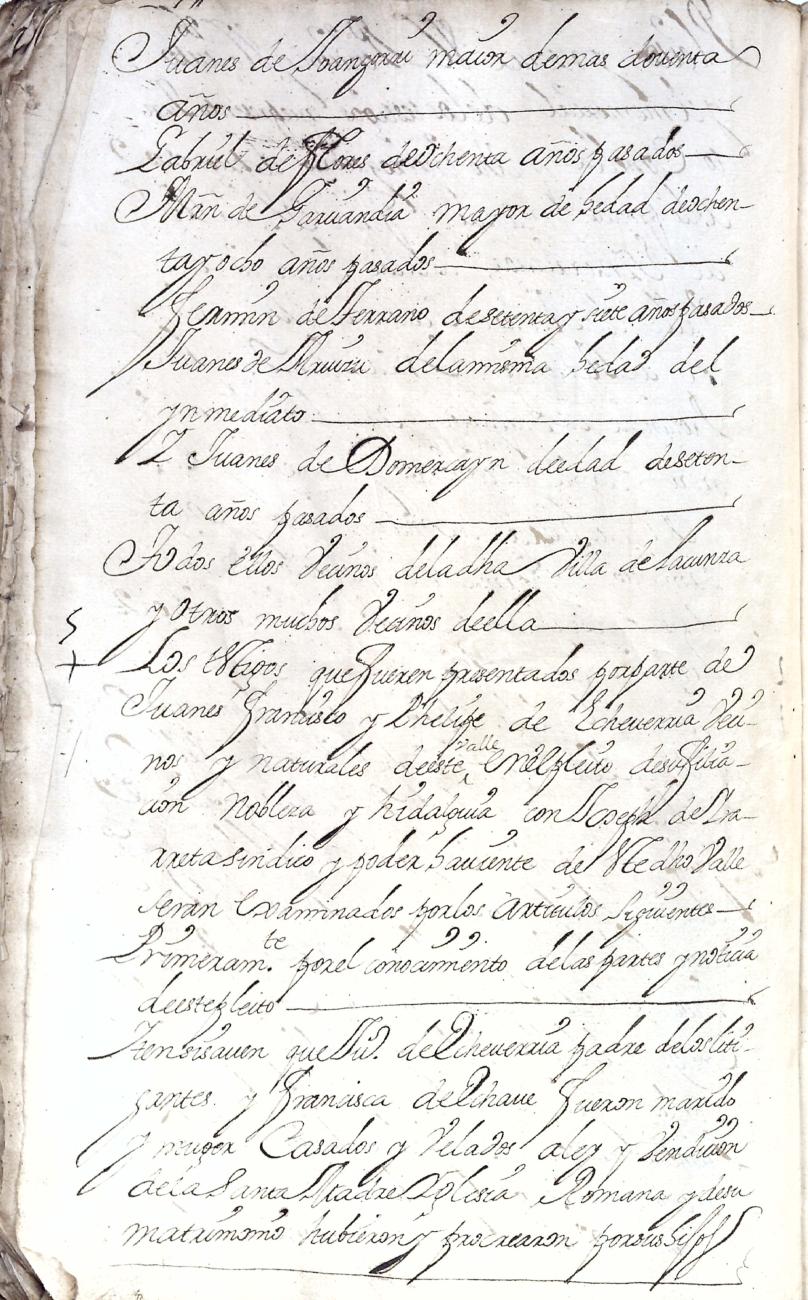 Juanes de maior demas de ochenta
años
Gabriel de Flores de ochenta años pasados
Mrn de Garciandia mayor de hedad de ochen-
ta y ocho años pasados
Fermin de Ferrano de setenta y siete años pasados
Juanes de de la misma hedad del
ynmediato
Y Juanes de Domercayn de edad de seten-
ta años pasados
Todos ellos Vecinos de la dha Villa de Lacunza
y Otros muchos Vecinos de ella
Los que fueren presentados por parte de
Juanes Francisco y Phelipe de Echeverria Veci-
nos y naturales de este valle en el pleito de su filia-
cion Nobleza y hidalguia con Joseph de Lra-
rreta sindico y poder haviente de dho Valle
seran Examinados por los Articulos siguientes
Primeramte por el conocimiento de las partes y noticia
de este pleito
Iten si saven que de Echeverria padre de los liti-
gantes y Francisca de Echaue fueron marido
y muger Casados y Velados a ley y Vendicion
de la Santa Madre Yglesia Romana y de su
matrimonio hubieron y procrearon por sus hijos